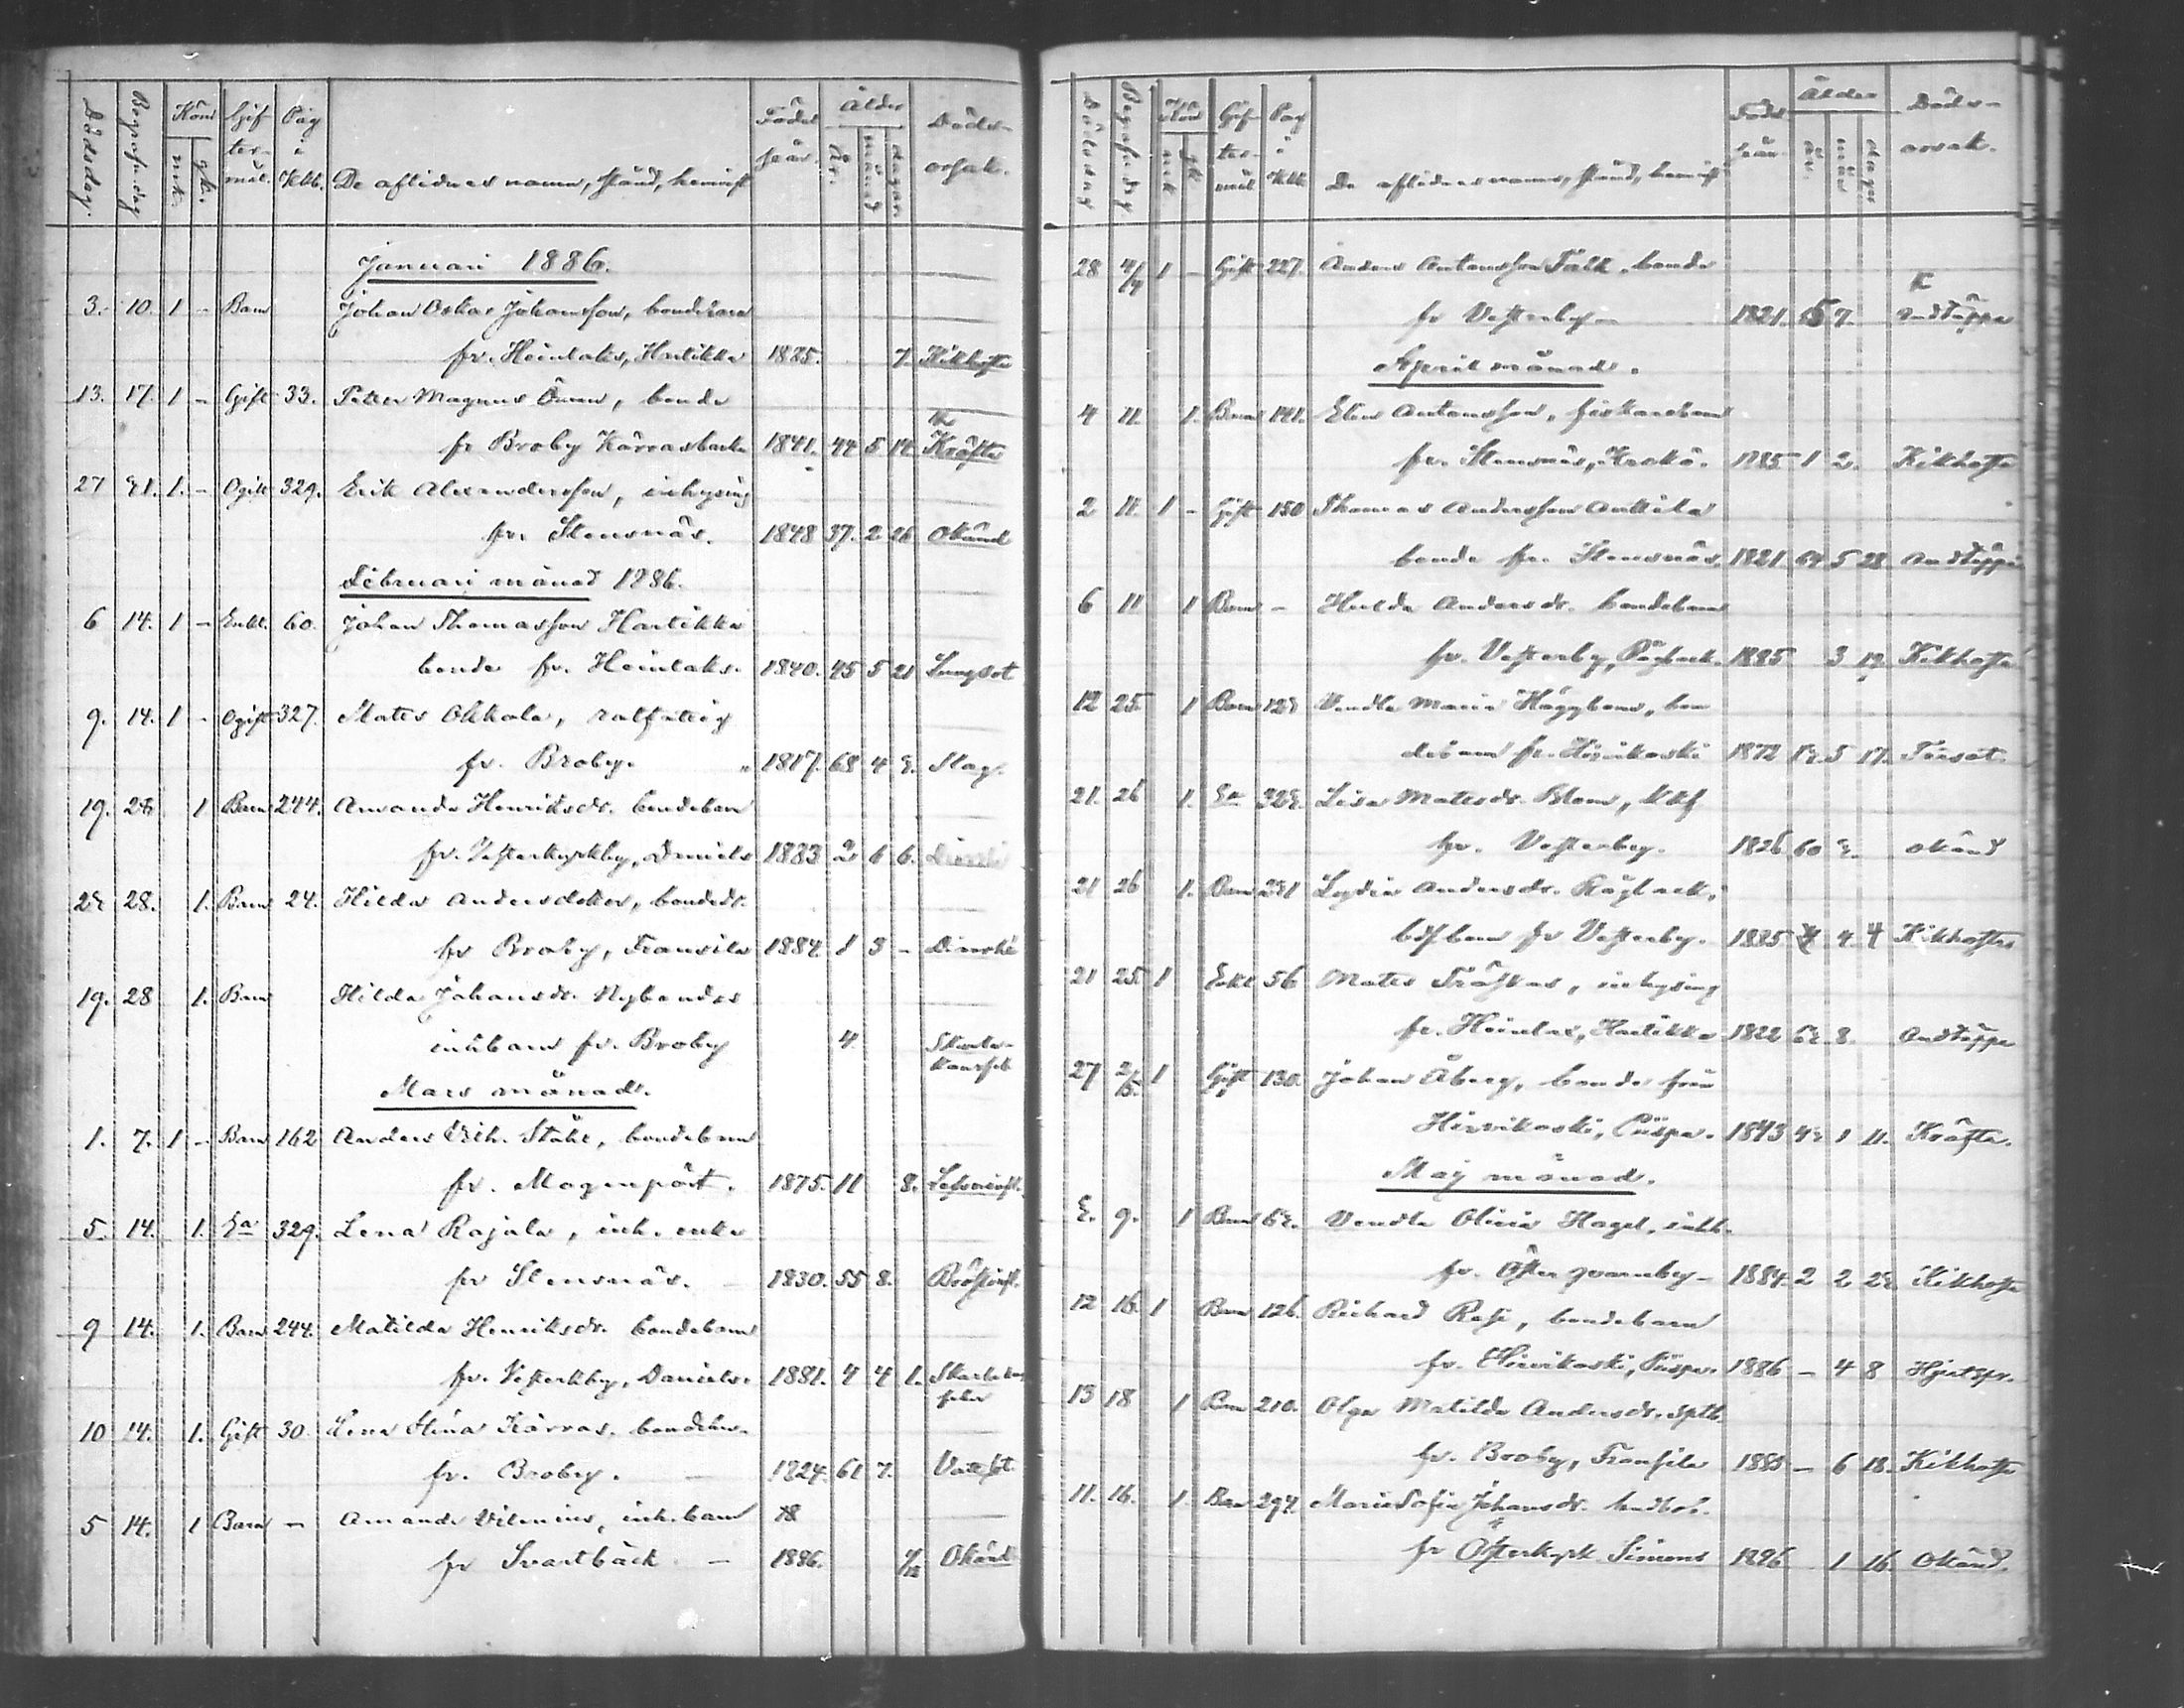 Dödsdag. Begrafn.dag Kön mk. qk. Giftermål. Pag i Kbk. De aflidnes namn, stånd, hemvist Födelseår. Ålder år. månad dagar. Dödsorsak.
Januari 1886.
3. 10. 1 - Barn Johan Oskar Johansson, bondebarn
fr. Heinlaks, Hartikka 1885. 7. Kikhosta
13. 17. 1 - Gift 33. Petter Magnus Öman, bonde
fr Broby Kärrasbacka 1841. 44 5 14. Kräfta
27 31. 1. - Ogift 329. Erik Alexandersson, inhysing
fr. Stensnäs. 1848 37. 2 26 Okänd
Februari månad 1886.
6 14. 1 - Enkl. 60. Johan Thomasson Hartikka
bonde fr. Heinlaks. 1840. 45 5 21 Lungsot
9. 14. 1 - Ogift 327. Mats Okkola, rotfattig
fr. Broby. 1817. 68 4 3. Slag.
19. 28 1 Barn 244. Amanda Henriksdr. bondebarn
fr. Vesterkyrkby, Daniels 1883 2 6 6.
23 28. 1. Barn 24. Hilda Andersdotter, bondedr.
fr Broby, Fransila 1884 1 3 - Diarrhé
19. 28 1. Barn Hilda Johansdr. Nybondas
inhbarn fr. Broby 4 Skarlakansfeb
Mars månad.
1. 7. 1 - Barn 162 Anders Vilh. Ståhl, bondebarn
fr. Mogenpört. 1875. 11 8.
5. 14. 1. Ea 329. Lena Rajala, inh. enka
fr Stensnäs. - 1830. 55 8. Bröstinfl.
9 14. 1. Barn 244. Matilda Henriksdr. bondebarn
fr. Vesterkby, Daniels. 1881. 4 4 1. Skarlakansfeber
10 14. 1. Gift 30. Lena Stina Kärras, bondehu.
fr. Broby. - 1824. 61 7. Vattsot
5 14. 1 Barn - Amanda Vilenius, inh. barn 18
fr Svartbäck - 1886. 1/12 Okänd
Dödsdag Begrafn.dag Kön mk qk Giftermål Pag i Kbk De aflidnes namn, stånd, hemvist Födelseår Ålder år. mån dagar Dödsorsak.
28 4/4 1 - Gift 227. Anders Antonsson Falk, bonde
fr Vesterby - 1821. 65 7. Andtäppa
April månad.
4 11. 1. Barn 141. Elin Antonsson, fiskarebarn
fr. Stensnäs, Krokö. 1885 1 2. Kikhosta
2 11. 1 - Gift 150 Thomas Andersson Anttila
bonde fr. Stensnäs. 1821 64 5 28 Andtäppa
6 11 1 Barn - Hulda Andersdr. bondebarn
fr. Vesterby, Rågback. 1885 3 19. Kikhosta
12 25. 1 Barn 123 Vendla Maria Häggbom, bon
debarn fr. Hirvikoski 1872 13. 5 17.
21. 26 1. Ea 323. Lisa Matsdr. Blom,
fr. Vesterby. 1826 60 3. okänd
21 26 1. Barn 231 Lydia Andersdr. Rågback,
bdsbarn fr Vesterby. 1885 4 4 Kikhosta
21 25. 1 Enkl 56 Mats Träskas, inhysing
fr. Heinlax, Hartikka 1822 63. 8. Andtäppa
27 2/5. 1 Gift 130. Johan Åberg, bonde från
Hirvikoski, Piispa. 1843 43 1 11. Kräfta.
Maj månad.
3. 9. 1 Barn 63. Vendla Olivia Hagel, inhb.
fr. Öster qvarnby - 1884. 2 2 23 Kikhosta
12 16. 1 Barn 126. Richard Rosi, bondebarn
fr. Hirvikoski, Piispa. 1886 - 4 8
13 18 1 Barn 210. Olga Matilda Andersdr. sptb.
fr. Broby, Fransila 1885 - 6 18. Kikhosta
11. 16. 1. Barn 294. Maria Sofia Johansdr.
fr Österkyrk Simons 1886 1 16 Okänd.